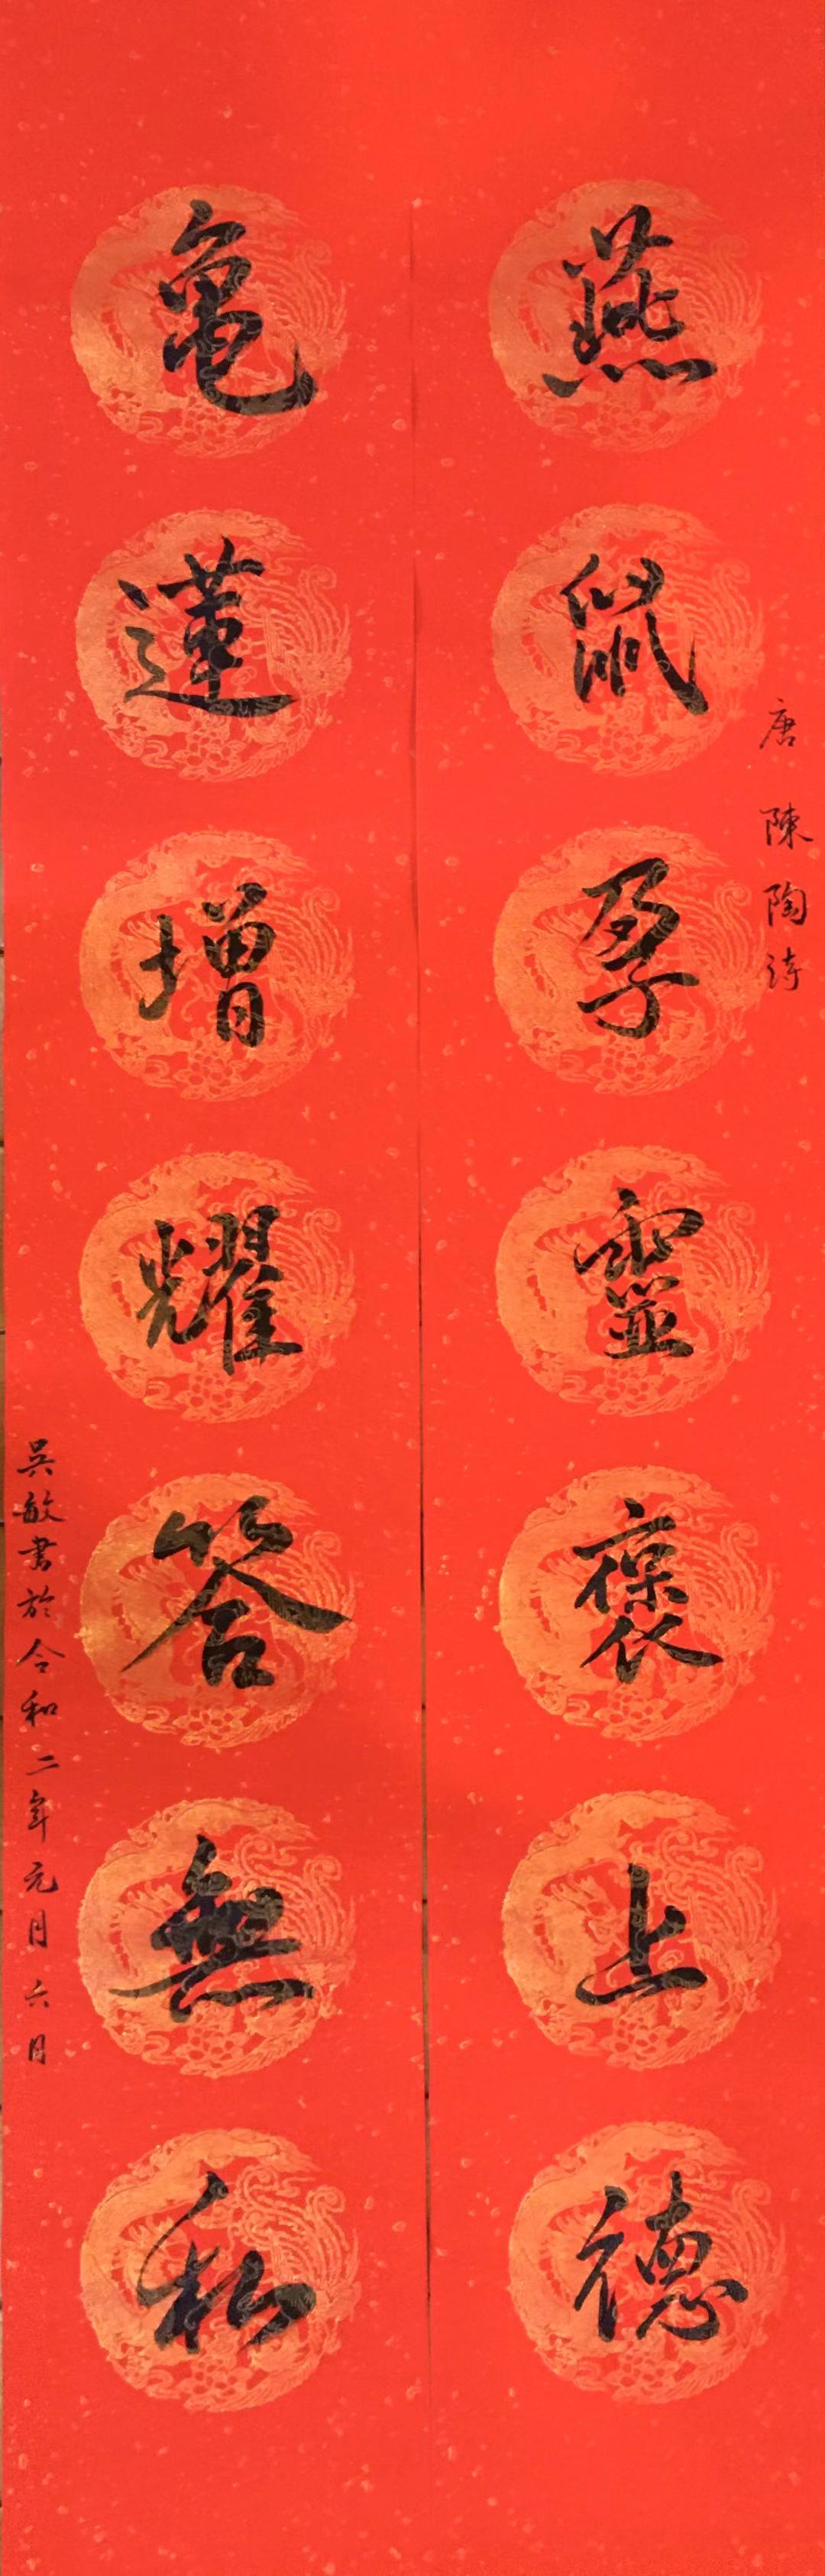 唐 陳陶詩
燕鼠孕靈褒上德
亀蓮增耀答無私
吳敏書於令和二年元月六日